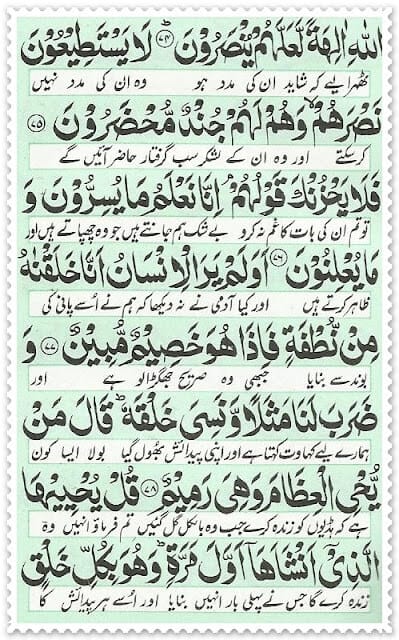 اللهِ اٰلِهَةً لَّعَلَّهُمْ يُنْصَرُوْنَ ﴿۷۴﴾ لَا يَسْتَطِيْعُوْنَ
ٹھہرا لیے کہ شاید ان کی مدد ہو وہ ان کی مدد نہیں
نَصْرَهُمْ وَهُمْ لَهُمْ جُنْدٌ مُّحْضَرُوْنَ ﴿۷۵﴾
کرسکتے اور وہ ان کے لشکر سب گرفتار حاضر آئیں گے
فَلَا يَحْزُنْكَ قَوْلُهُمْ اِنَّا نَعْلَمُ مَا يُسِرُّوْنَ وَ
تو تم ان کی بات کا غم نہ کرو بے شک ہم جانتے ہیں جو وہ چھپاتے ہیں اور
مَا يُعْلِنُوْنَ ﴿۷۶﴾ اَوَلَمْ يَرَ الْاِنْسَانُ اَنَّا خَلَقْنٰهُ
ظاہر کرتے ہیں اور کیا آدمی نے نہ دیکھا کہ ہم نے اسے پانی کی
مِنْ نُّطْفَةٍ فَاِذَا هُوَ خَصِيْمٌ مُّبِيْنٌ ﴿۷۷﴾ وَ
بوند سے بنایا جبھی وہ صریح جھگڑالو ہے اور
ضَرَبَ لَنَا مَثَلًا وَّنَسِيَ خَلْقَهٗ قَالَ مَنْ
ہمارے لیے کہاوت کہتا ہے اور اپنی پیدائش بھول گیا بولا ایسا کون
يُّحْيِ الْعِظَامَ وَهِيَ رَمِيْمٌ ﴿۷۸﴾ قُلْ يُحْيِيْهَا
ہے کہ ہڈیوں کو زندہ کرے جب وہ بالکل گل گئیں تم فرماؤ انہیں وہ
الَّذِيْٓ اَنْشَاَهَآ اَوَّلَ مَرَّةٍ وَهُوَ بِكُلِّ خَلْقٍ
زندہ کرے گا جس نے پہلی بار انہیں بنایا اور اسے ہر پیدائش کا